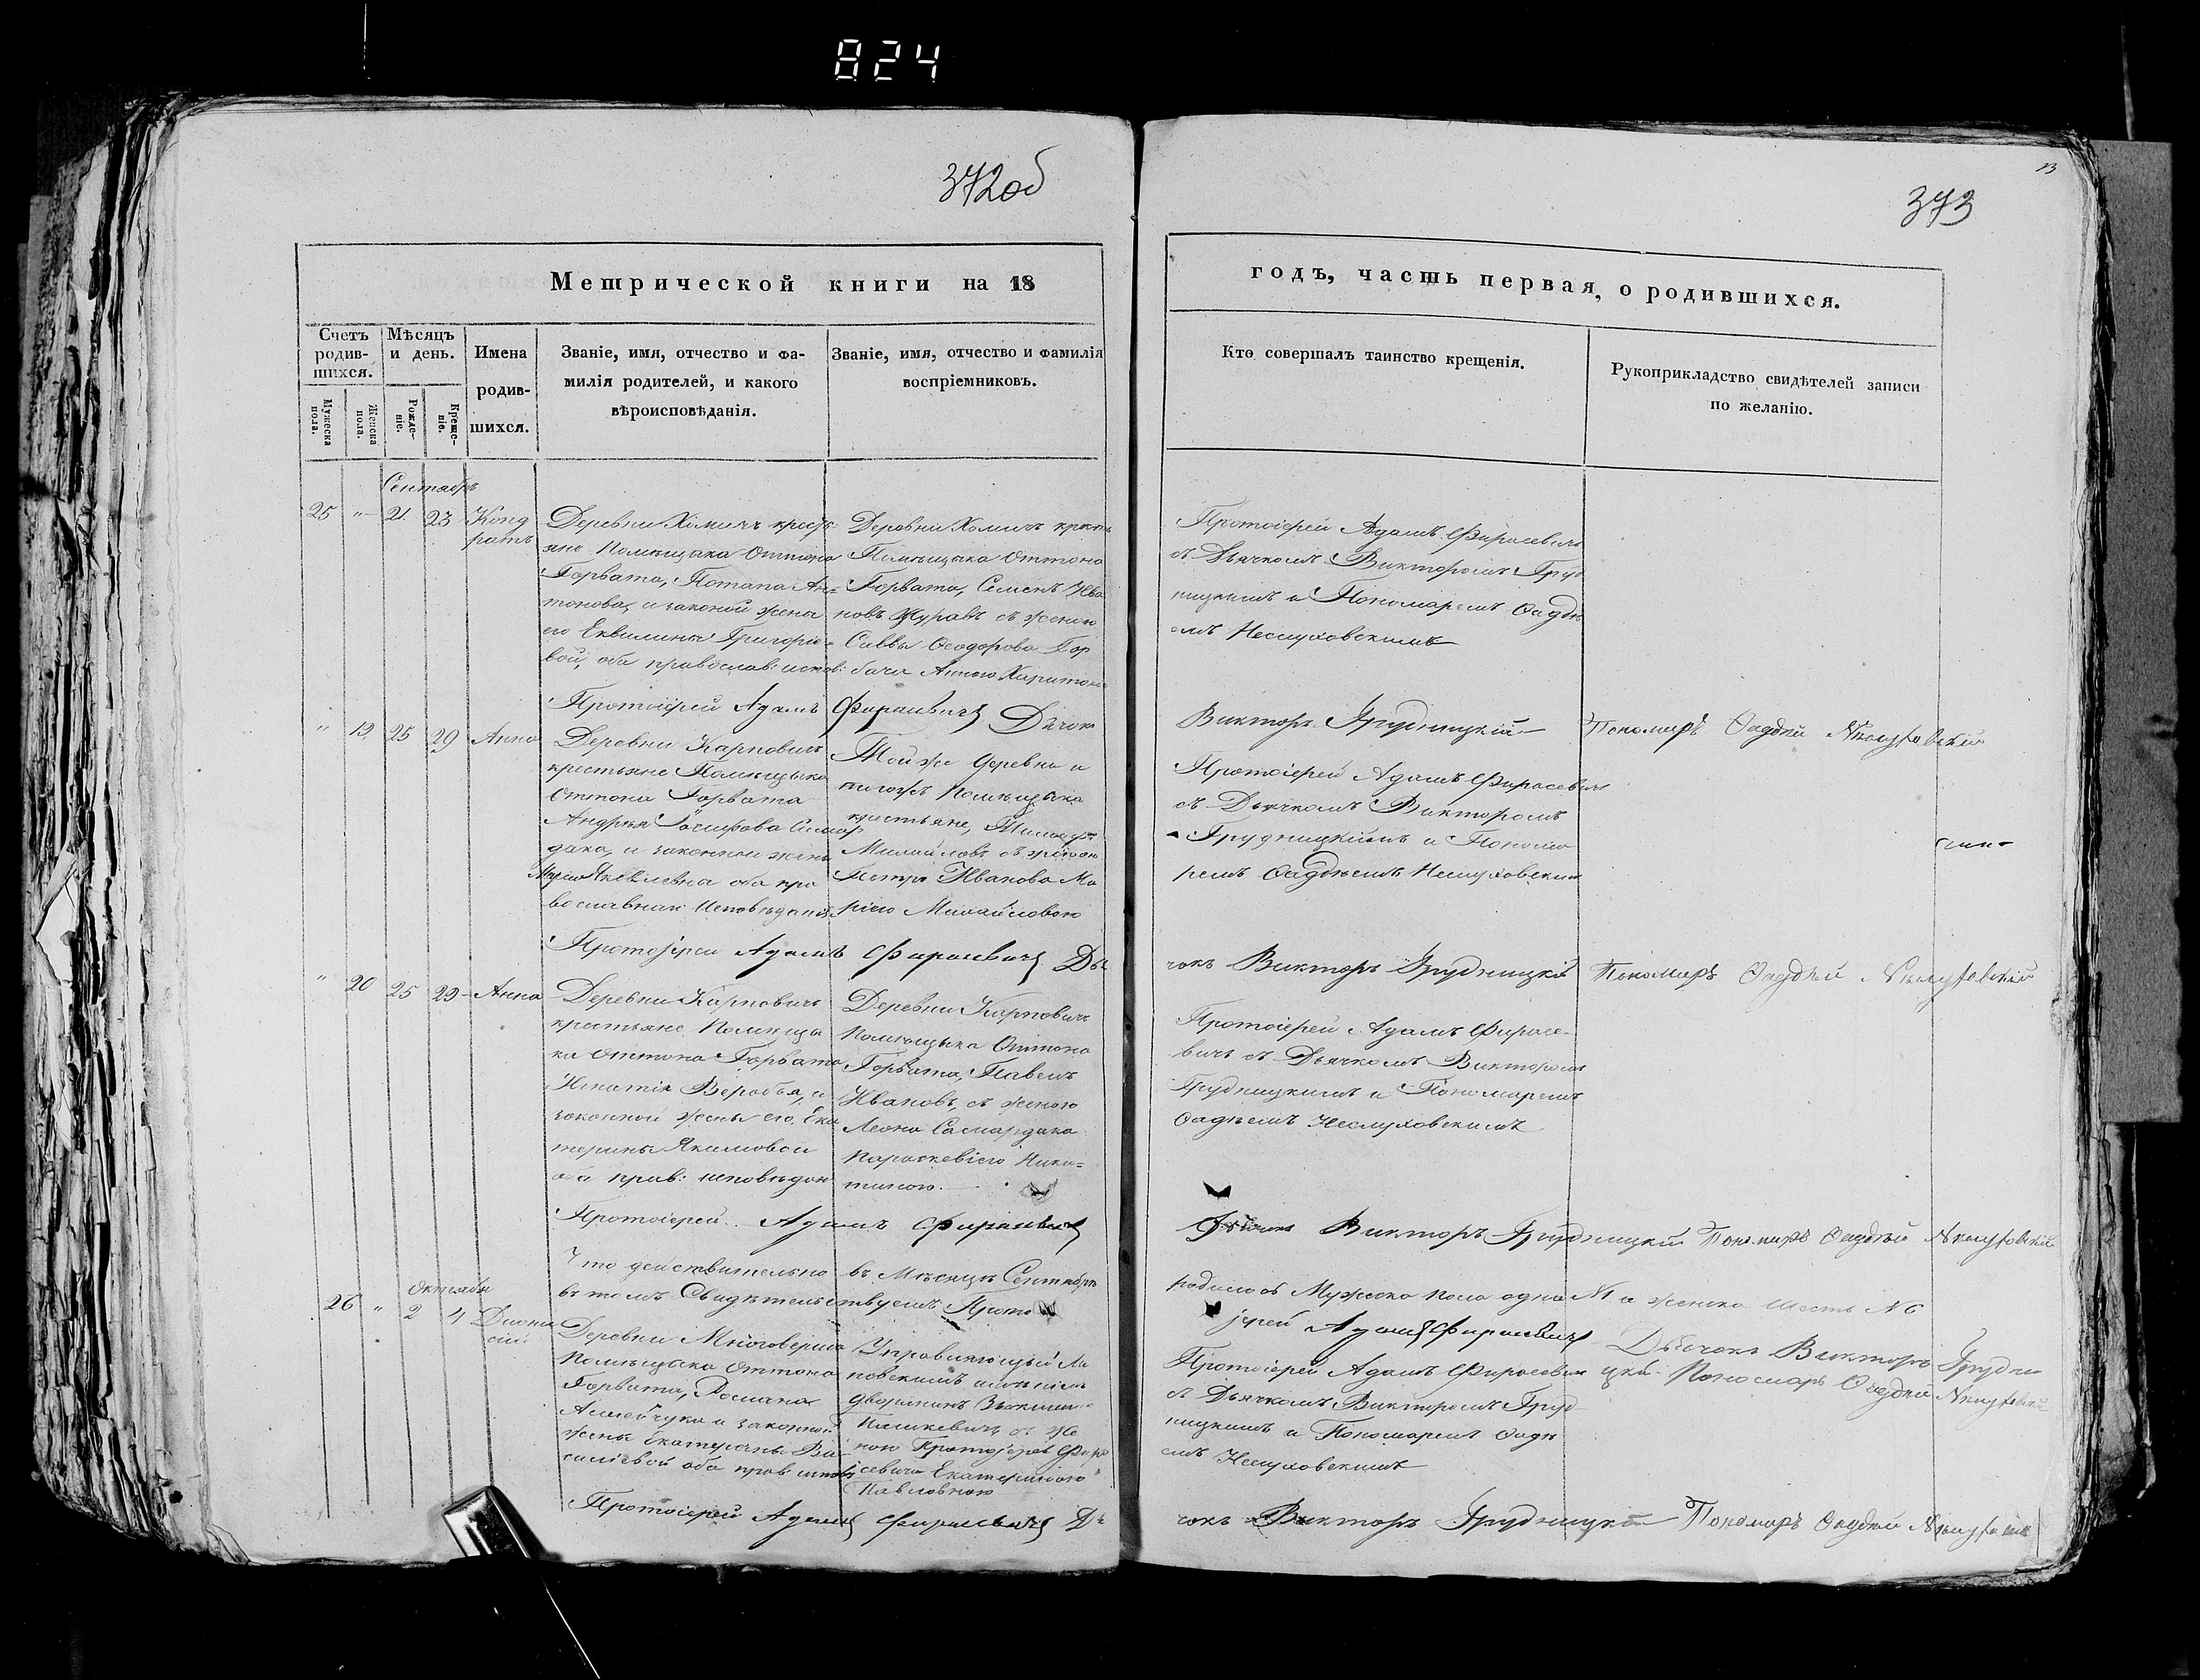 824
372об
373
13
Метрической книги на 18
годъ, часть первая, о родившихся.
Счетъ родив-шихся.
Мѣсяцъ и день.
Имена родив-шихся.
Званіе, имя, отчество и фа-
милія родителей, и какого
вѣроисповѣданія.
Званіе, имя, отчество и фамилія
воспріемниковъ.
Кто совершалъ таинство крещенія.
Рукоприкладство свидѣтелей записи
по желанію.
Мужеска пола.
Женска пола.
Рожде-ніе.
Креще-ніе.
Сентабръ
25 " 21 23 Кондратъ
Деревни Хомичъ кресть
яне Помѣщика Оттона
Горвата, Потапа Ан=
тонова, и законой жена
его Григорие=
вой, оба православ: испов:
Деревни Хомичъ кресть
Помѣщика Оттона
Горвата, Семенъ Ива
новъ Журавъ съ женою
Саввы Ѳеодорова Гор
бача Анною Харитон
Протоіерей Адамъ Фирасевичъ
съ Дьячкомъ Викторомъ Груд
ницкимъ и Пономаремъ Ѳадѣ
емъ Неслуховскимъ
Протоіерей Адамъ Фирасевичъ Дьчок
Викторъ Грудницкій Пономаръ Ѳадѣй Неслуховскій
" 19 25 29 Анна
Деревни Карповичъ
крестьяне Помѣщика
Оттона Горвата
Андрея Иосифова
дака, и законной жены
Марии Яковлевна оба пра
вославнаи Исповѣданія
Той же деревни и
тогожъ Помѣщика
крестьяне,
Михайловъ съ женою
Петра Иванова Ма
ріею Михайловою
Протоіерей Адамъ Фирасевичъ
съ Дьячкомъ Викторомъ
Грудницкимъ и Понома
ремъ Ѳадѣемъ Неслуховским
Протоіерей Адамъ Фирасевичъ Дь
чокъ Викторъ Грудницкій Пономаръ Ѳадѣй Неслуховскій
" 20 25 29 Анна
Деревни Карповичъ
крестьяне Помѣщи
ка Оттона Горвата
Игнатія Веробья, и
законной жены его, Ека
терины Якимовой
оба прав: исповѣдан
Деревни Карповичъ
Помѣщика Оттона
Горвата, Павелъ
Ивановъ, съ женою
Леона Самардака
Параскевіею Ники=
тиною.
Протоіерей Адамъ Фирасе-
вичъ съ Дьячкомъ Викторомъ
Грудницкимъ и Пономаремъ
Ѳадѣемъ Неслуховскимъ
Протоіерей Адамъ Фирасевичъ
Дьчокъ Викторъ Грудницкій Пономаръ Ѳадѣй Неслуховскій
Что действительно въ Мѣсяцѣ Сентабрѣ
родилось Мужеска пола одна №1 а женска шесть №6
въ томъ Свидѣтельствуемъ Прото
іерей Адамъ Фирасевичъ Дьчокъ Викторъ Грудни
цкій Пономаръ Ѳадѣй Неслуховскій
Октября
26 " 2 4 Диони сій
Деревни
Помѣщика Оттона
Горвата, Романа
и законной
жены Екатерины Ва
силіевой оба прав: испов
Управляющый Ли
повскимъ имѣніемъ
дворянинъ
съ же
ною Протоіерея Фира
севича Екатериною
Павловною
Протоіерей Адамъ Фирасевич
съ Дьячкомъ Викторомъ Груд
ницкимъ и Пономаремъ Ѳадѣ
емъ Неслуховскимъ
Протоіерей Адамъ Фирасевичъ Дь
чокъ Викторъ Грудницкій Пономаръ Ѳадѣй